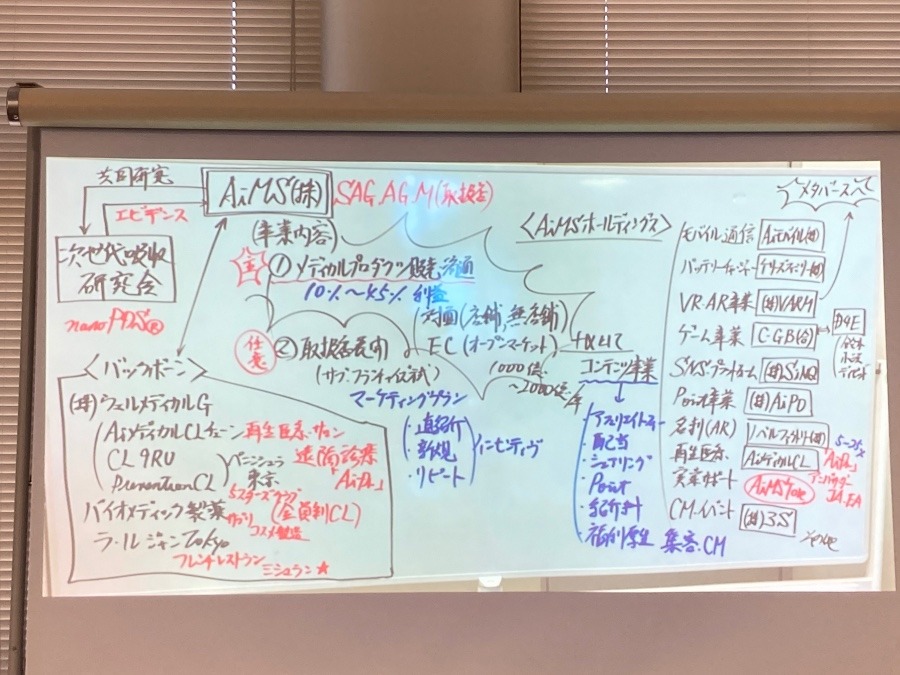 共同研究
AiMS(株)
SAG.AGM(取扱店)
エビデンス
(事業内容)
次世代吸収
研究会
nano PDS®
① メディカルプロダクツ販売流通
10%~45% 利益
対面(店舗,無店舗)
任意
② 取扱店展開
(サブ.フランチャイズ方式)
EC(オープンマーケット)
1000億
~2000億/年
マーケティングプラン
・直紹介
・新規
・リピート
インセンティヴ
<バックボーン>
(株)ウェルメディカルG
AiメディカルCLチェーン
再生医療・サロン
CL 9RU
PreventionCL
遠隔診療
「Aiな」
東京
(会員制CL)
バイオメディック製薬
サプリ
コスメ製造
ラ・ルジャンTokyo
フレンチレストラン
ミシュラン★
<AiMSホールディングス>
+αとして
コンテンツ事業
・アフィリエイト
・配当
・シェアリング
・Point
・紹介料
・福利厚生 集客.CM
メタバースへ
モバイル通信 Aiモバイル(株)
バッテリーチャージャー
VR・AR事業 (株)VARY
ゲーム事業 C・GB(合)
SNSプラットホーム
Point事業 (株)AiPO
名刺(AR) ノーベルファクトリー(株)
再生医療 AiメディカルCL
実業サポート
CM.イベント (株)3S
アンバサダー